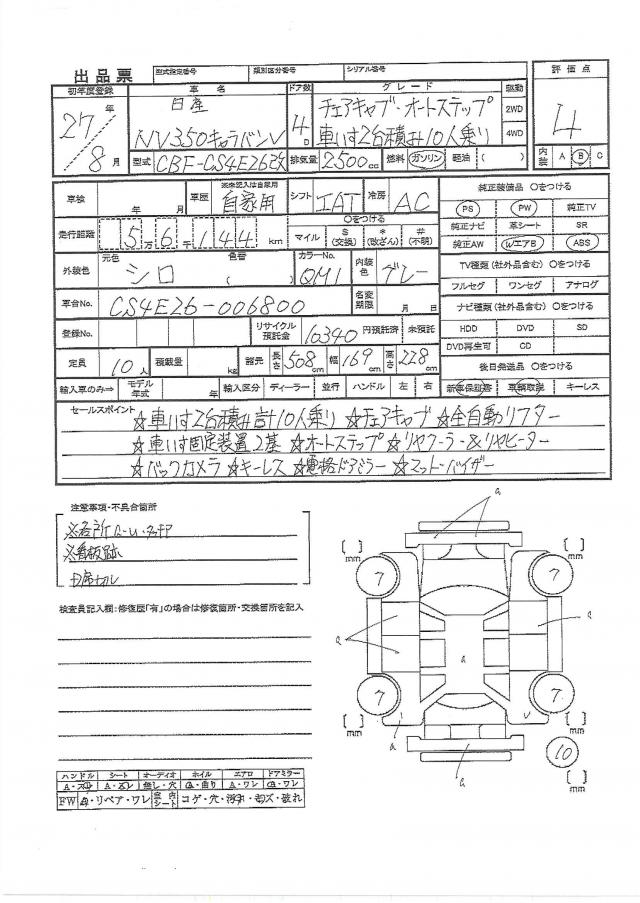 出品票 型式指定番号 類別区分番号 シリアル番号
初年度登録 車名 ドア数 グレード 駆動 評価点
27年 8月 日産 NV350キャラバンV 4D チェアキャブ・オートステップ 2WD 4
車いす2台積み10人乗り 4WD
型式 CBF-CS4E26改 排気量 2500cc 燃料 ガソリン 軽油 ( ) 内装 A B C
車検 年 月 車歴 ※未記入は自家用 自家用 シフト IAT 冷房 AC 純正装備品 ○をつける
○をつける PS PW 純正TV
走行距離 5万6千144km マイル $(交換) *(改ざん) #(不明) 純正ナビ 革シート SR
純正AW WエアB ABS
外装色 元色 シロ 色替 ( ) カラーNo. QM1 内装色 グレー TV種類(社外品含む) ○をつける
フルセグ ワンセグ アナログ
車台No. CS4E26-006800 名変期限 月 日 ナビ種類(社外品含む) ○をつける
登録No. リサイクル預託金 10340 円預託済 未預託 HDD DVD SD
DVD再生可 CD
定員 10人 積載量 kg 諸元 長さ 508cm 幅 169cm 高さ 228cm 後日発送品 ○をつける
輸入車のみ⇒ モデル年式 年 輸入区分 ディーラー 並行 ハンドル 左 右 新車保証書 車輌取説 キーレス
セールスポイント ☆車いす2台積み計10人乗り ☆チェアキャブ ☆全自動リフター
☆車いす固定装置2基 ☆オートステップ ☆リヤクーラー&リヤヒーター
☆バックカメラ ☆キーレス ☆電格ドアミラー ☆マット・バイザー
注意事項・不具合箇所
※看板跡
検査員記入欄:修復歴「有」の場合は修復箇所・交換箇所を記入
a
[ ]mm 7 7 [ ]mm
a a
a
[ ]mm 7 7 [ ]mm
a
a 10
[ ]mm
ハンドル シート オーディオ ホイル エアロ ドアミラー
A・スレ A・スレ 無し・穴 A・曲り A・ワレ A・ワレ
FW A・リペア・ワレ 室内シート コゲ・穴・汚れ・キズ・破れ